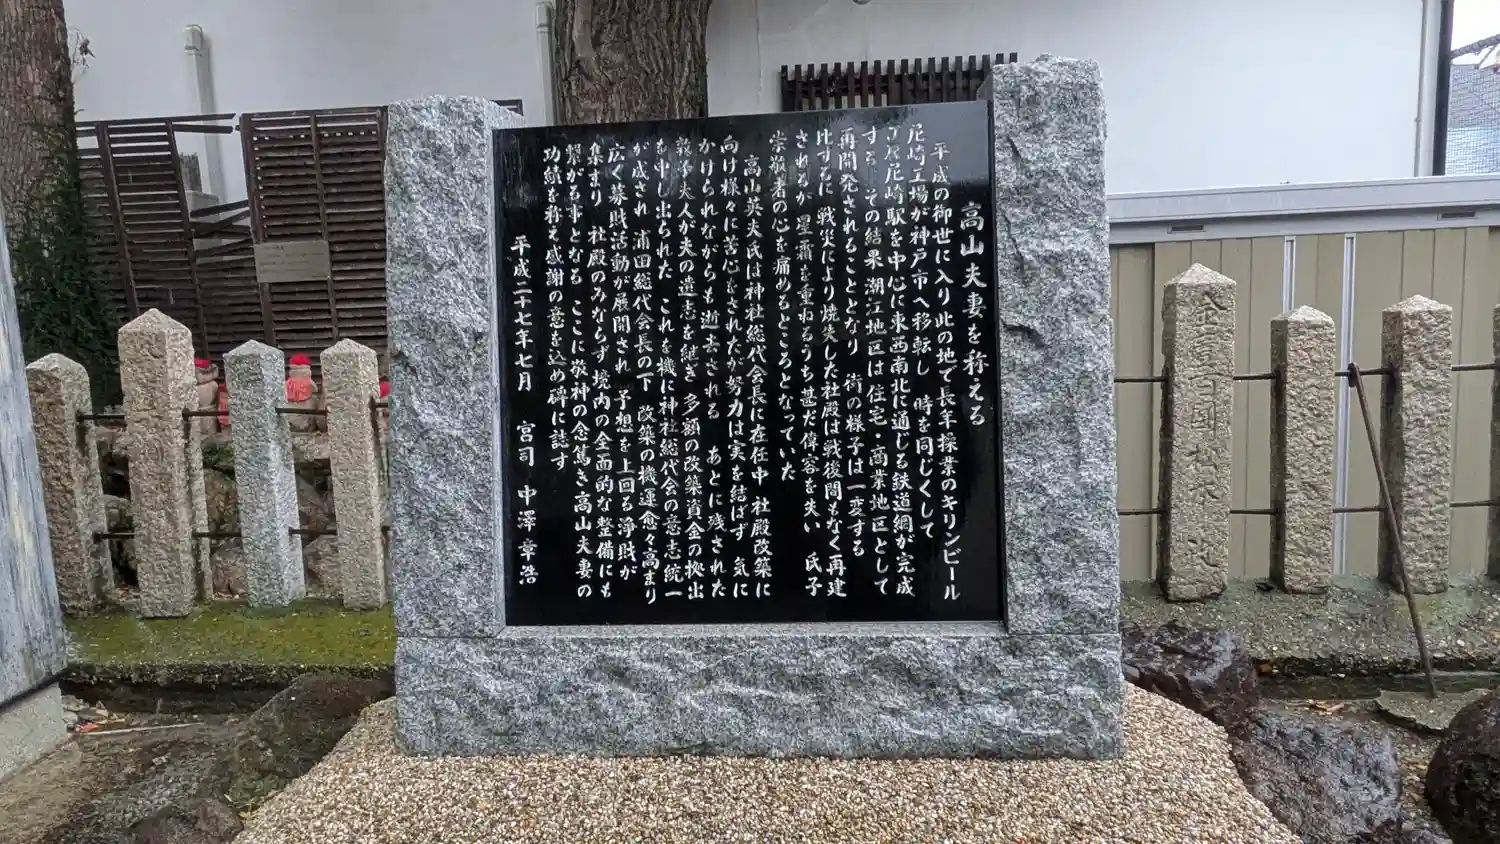 高山夫妻を称える
平成の御世に入り此の地で長年操業のキリンビール
尼崎工場が神戸市へ移転し 時を同じくして
JR尼崎駅を中心に東西南北に通じる鉄道網が完成
する その結果 潮江地区は住宅・商業地区として
再開発されることとなり 街の様子は一変する
比するに 戦災により焼失した社殿は戦後間もなく再建
されるが 星霜を重ねるうち甚だ偉容を失い 氏子
崇敬者の心を痛めるところとなっていた
高山英夫氏は神社総代会長に在任中 社殿改築に
向け様々に苦心をされたが努力は実を結ばず 気に
かけられながらも逝去される あとに残された
夫人が夫の遺志を継ぎ 多額の改築資金の拠出
を申し出られた これを機に神社総代会の意志統一
が成され 浦田総代会長の下 改築の機運愈々高まり
広く募財活動が展開され 予想を上回る浄財が
集まり 社殿のみならず 境内の全面的な整備にも
繋がる事となる ここに敬神の念篤き高山夫妻の
功績を称え感謝の意を込め碑に誌す
平成二十七年七月 宮司 中澤章浩